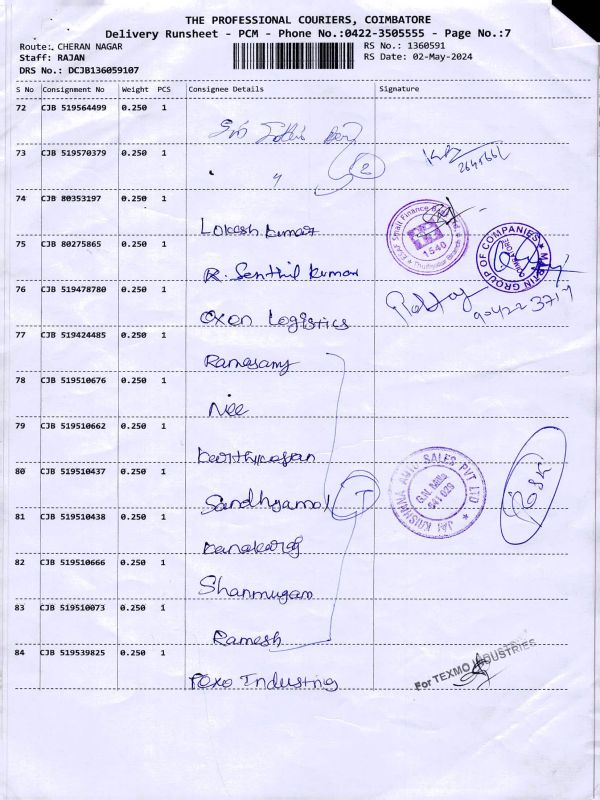 THE PROFESSIONAL COURIERS, COIMBATORE
Delivery Runsheet - PCM - Phone No.:0422-3505555 - Page No.:7
Route: CHERAN NAGAR RS No.: 1360591
Staff: RAJAN RS Date: 02-May-2024
DRS No.: DCJB136059107
S No Consignment No Weight PCS Consignee Details Signature
72 CJB 519564499 0.250 1
73 CJB 519570379 0.250 1
2
74 CJB 80353197 0.250 1
Lokesh kumar
75 CJB 80275865 0.250 1
R. Senthil kumar
76 CJB 519478780 0.250 1
Oxon Logistics
77 CJB 519424485 0.250 1
Ramasamy
78 CJB 519510676 0.250 1
79 CJB 519510662 0.250 1
80 CJB 519510437 0.250 1
81 CJB 519510438 0.250 1
82 CJB 519510666 0.250 1
Shanmugam
83 CJB 519510073 0.250 1
Ramesh
84 CJB 519539825 0.250 1
ESAF Small Finance
1540
MARTIN GROUP OF COMPANIES
JAI KRISHNAA AUTO SALES PVT LTD.
G.N. Mills
641 029
For TEXMO INDUSTRIES